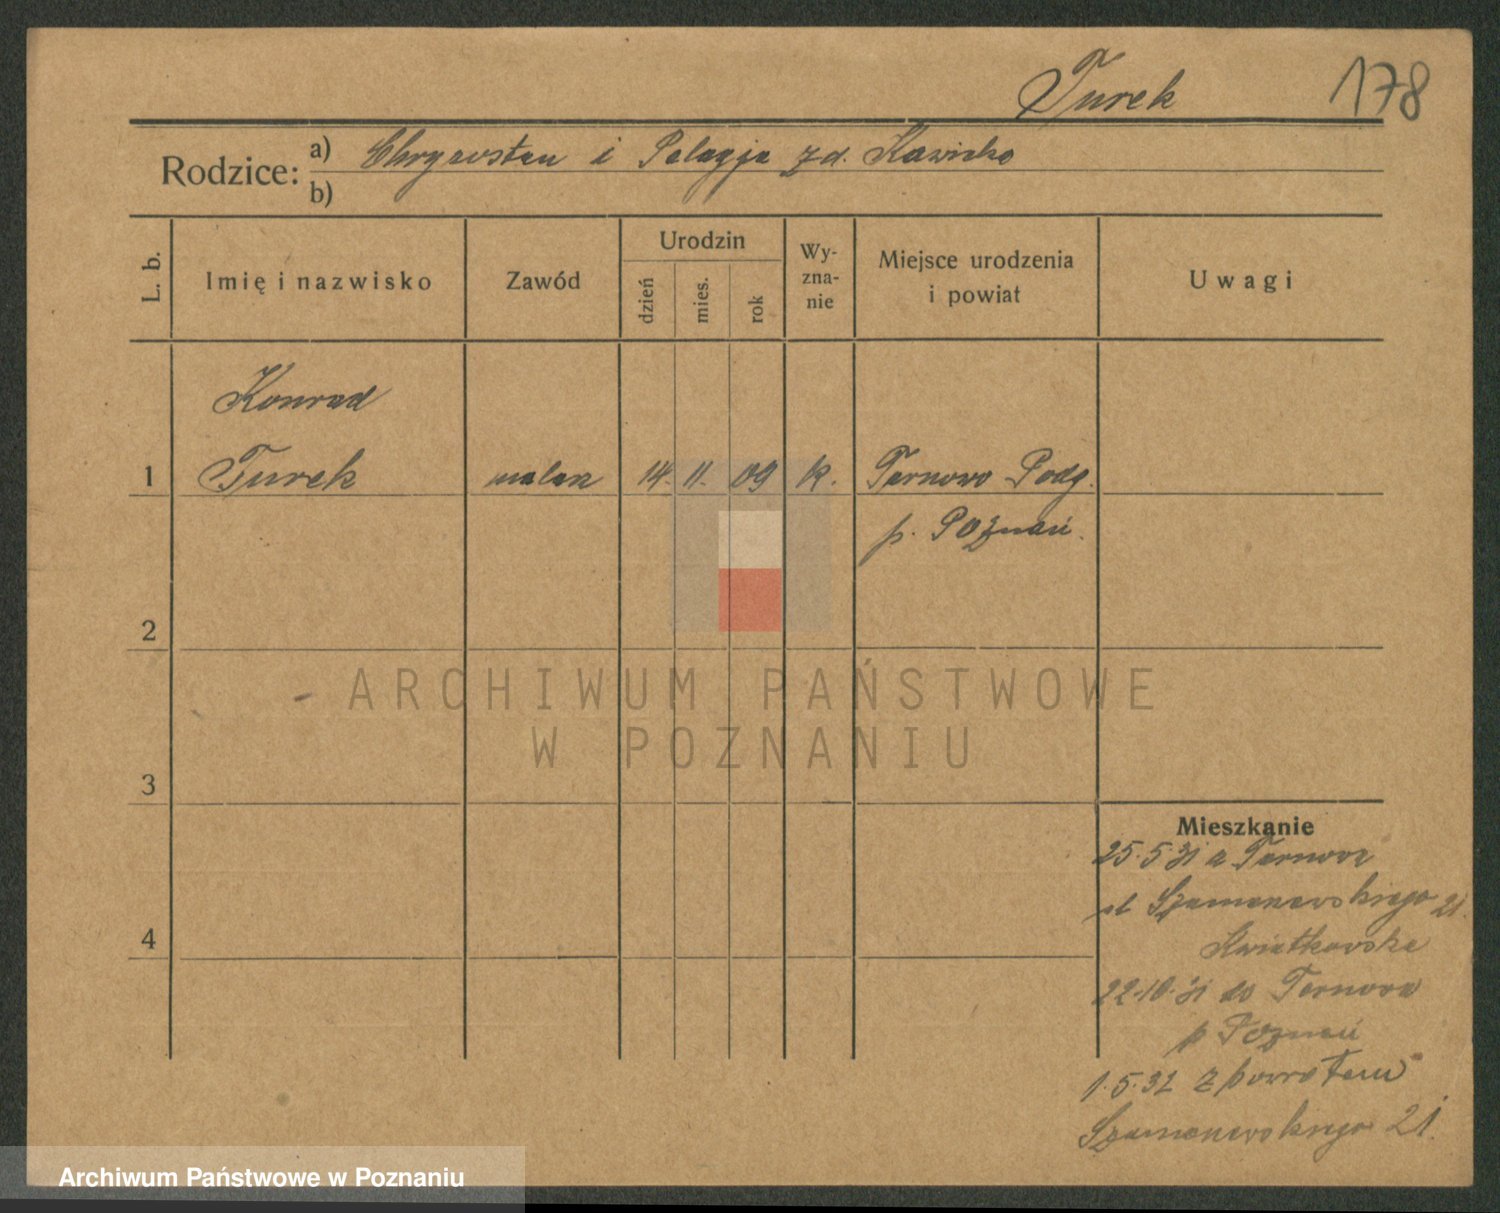 Turek 178
Rodzice: a) Chryzostan i Pelagja z d. Kawicka
b)
L. b. Imię i nazwisko Zawód Urodzin dzień mies. rok Wyznanie Miejsce urodzenia i powiat Uwagi
Konrad
1 Turek malarz 14. 11. 09 k. Tarnowo Podg.
p. Poznań.
2
ARCHIWUM PAŃSTWOWE
W POZNANIU
3
Mieszkanie
25.5.31 z Tarnowa
ul Szamarzewskiego 21.
4
Kwiatkowska
22.10.31 do Tarnowa
p Poznań
1.5.32 z powrotem
Szamarzewskiego 21.
Archiwum Państwowe w Poznaniu